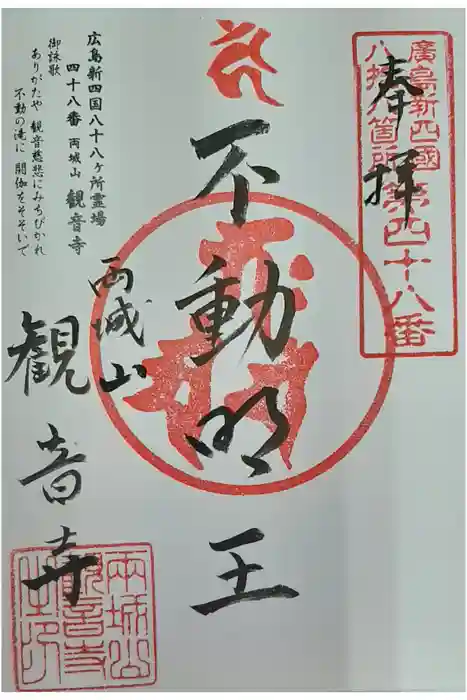 廣島新四國
八拾八箇所第四十八番
奉拝
不動明王
両城山
観音寺
広島新四国八十八ヶ所霊場
四十八番 両城山 観音寺
御詠歌
ありがたや 観音慈悲にみちびかれ
不動の滝に 閼伽をそそいで
両城山
観音寺